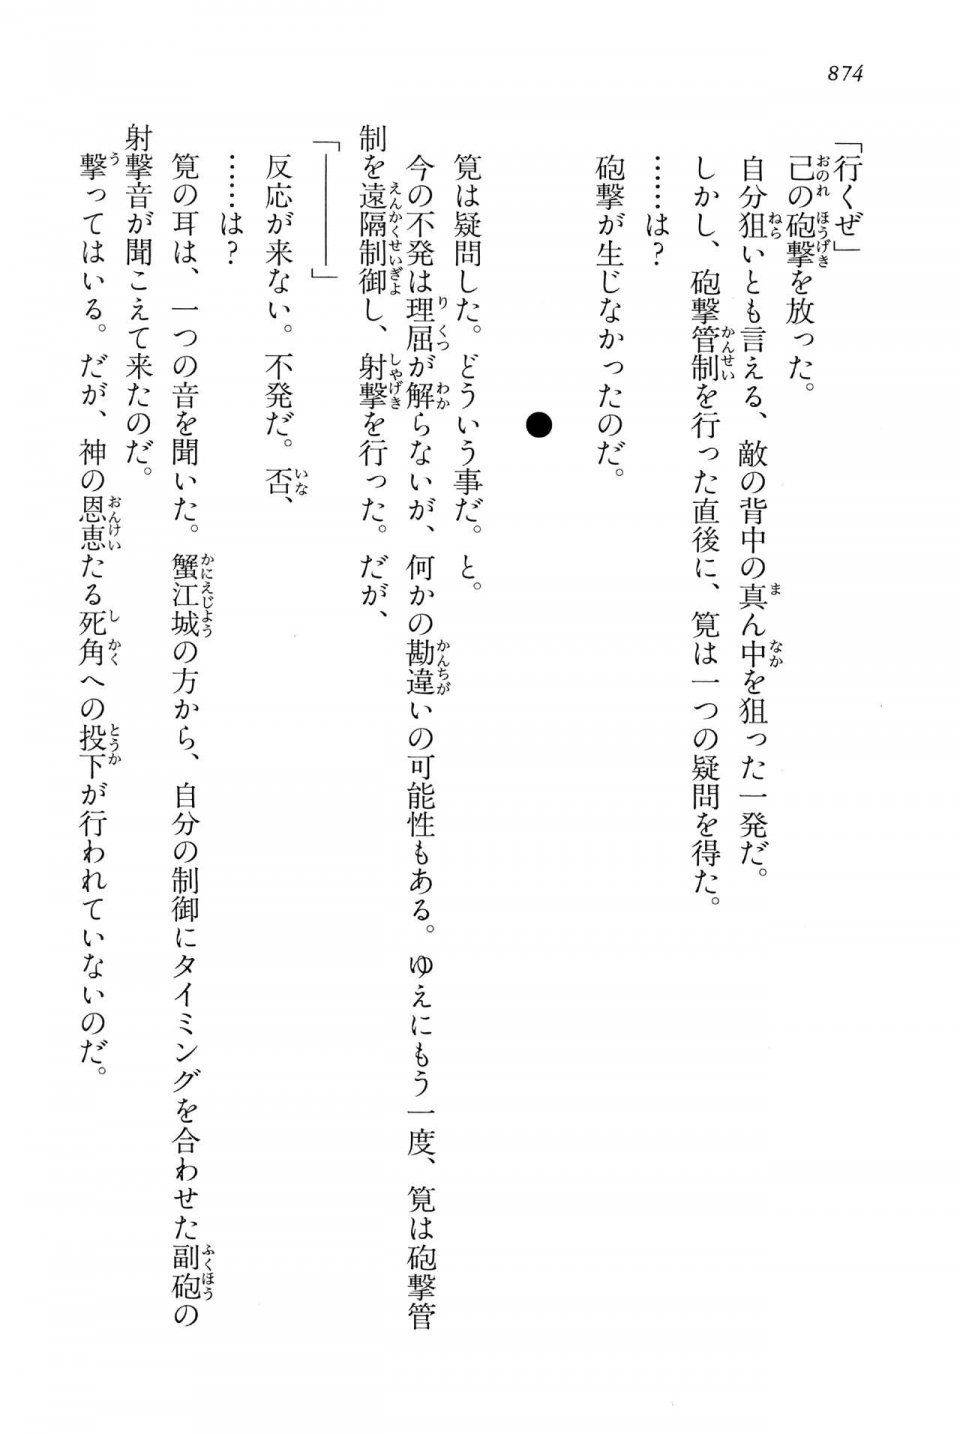 874
「行くぜ」
己の砲撃を放った。
自分狙いとも言える、敵の背中の真ん中を狙った一発だ。
しかし、砲撃管制を行った直後に、筧は一つの疑問を得た。
……は？
砲撃が生じなかったのだ。
●
筧は疑問した。どういう事だ。と。
今の不発は理屈が解らないが、何かの勘違いの可能性もある。ゆえにもう一度、筧は砲撃管
制を遠隔制御し、射撃を行った。だが、
「————」
反応が来ない。不発だ。否、
……は？
筧の耳は、一つの音を聞いた。蟹江城の方から、自分の制御にタイミングを合わせた副砲の
射撃音が聞こえて来たのだ。
撃ってはいる。だが、神の恩恵たる死角への投下が行われていないのだ。